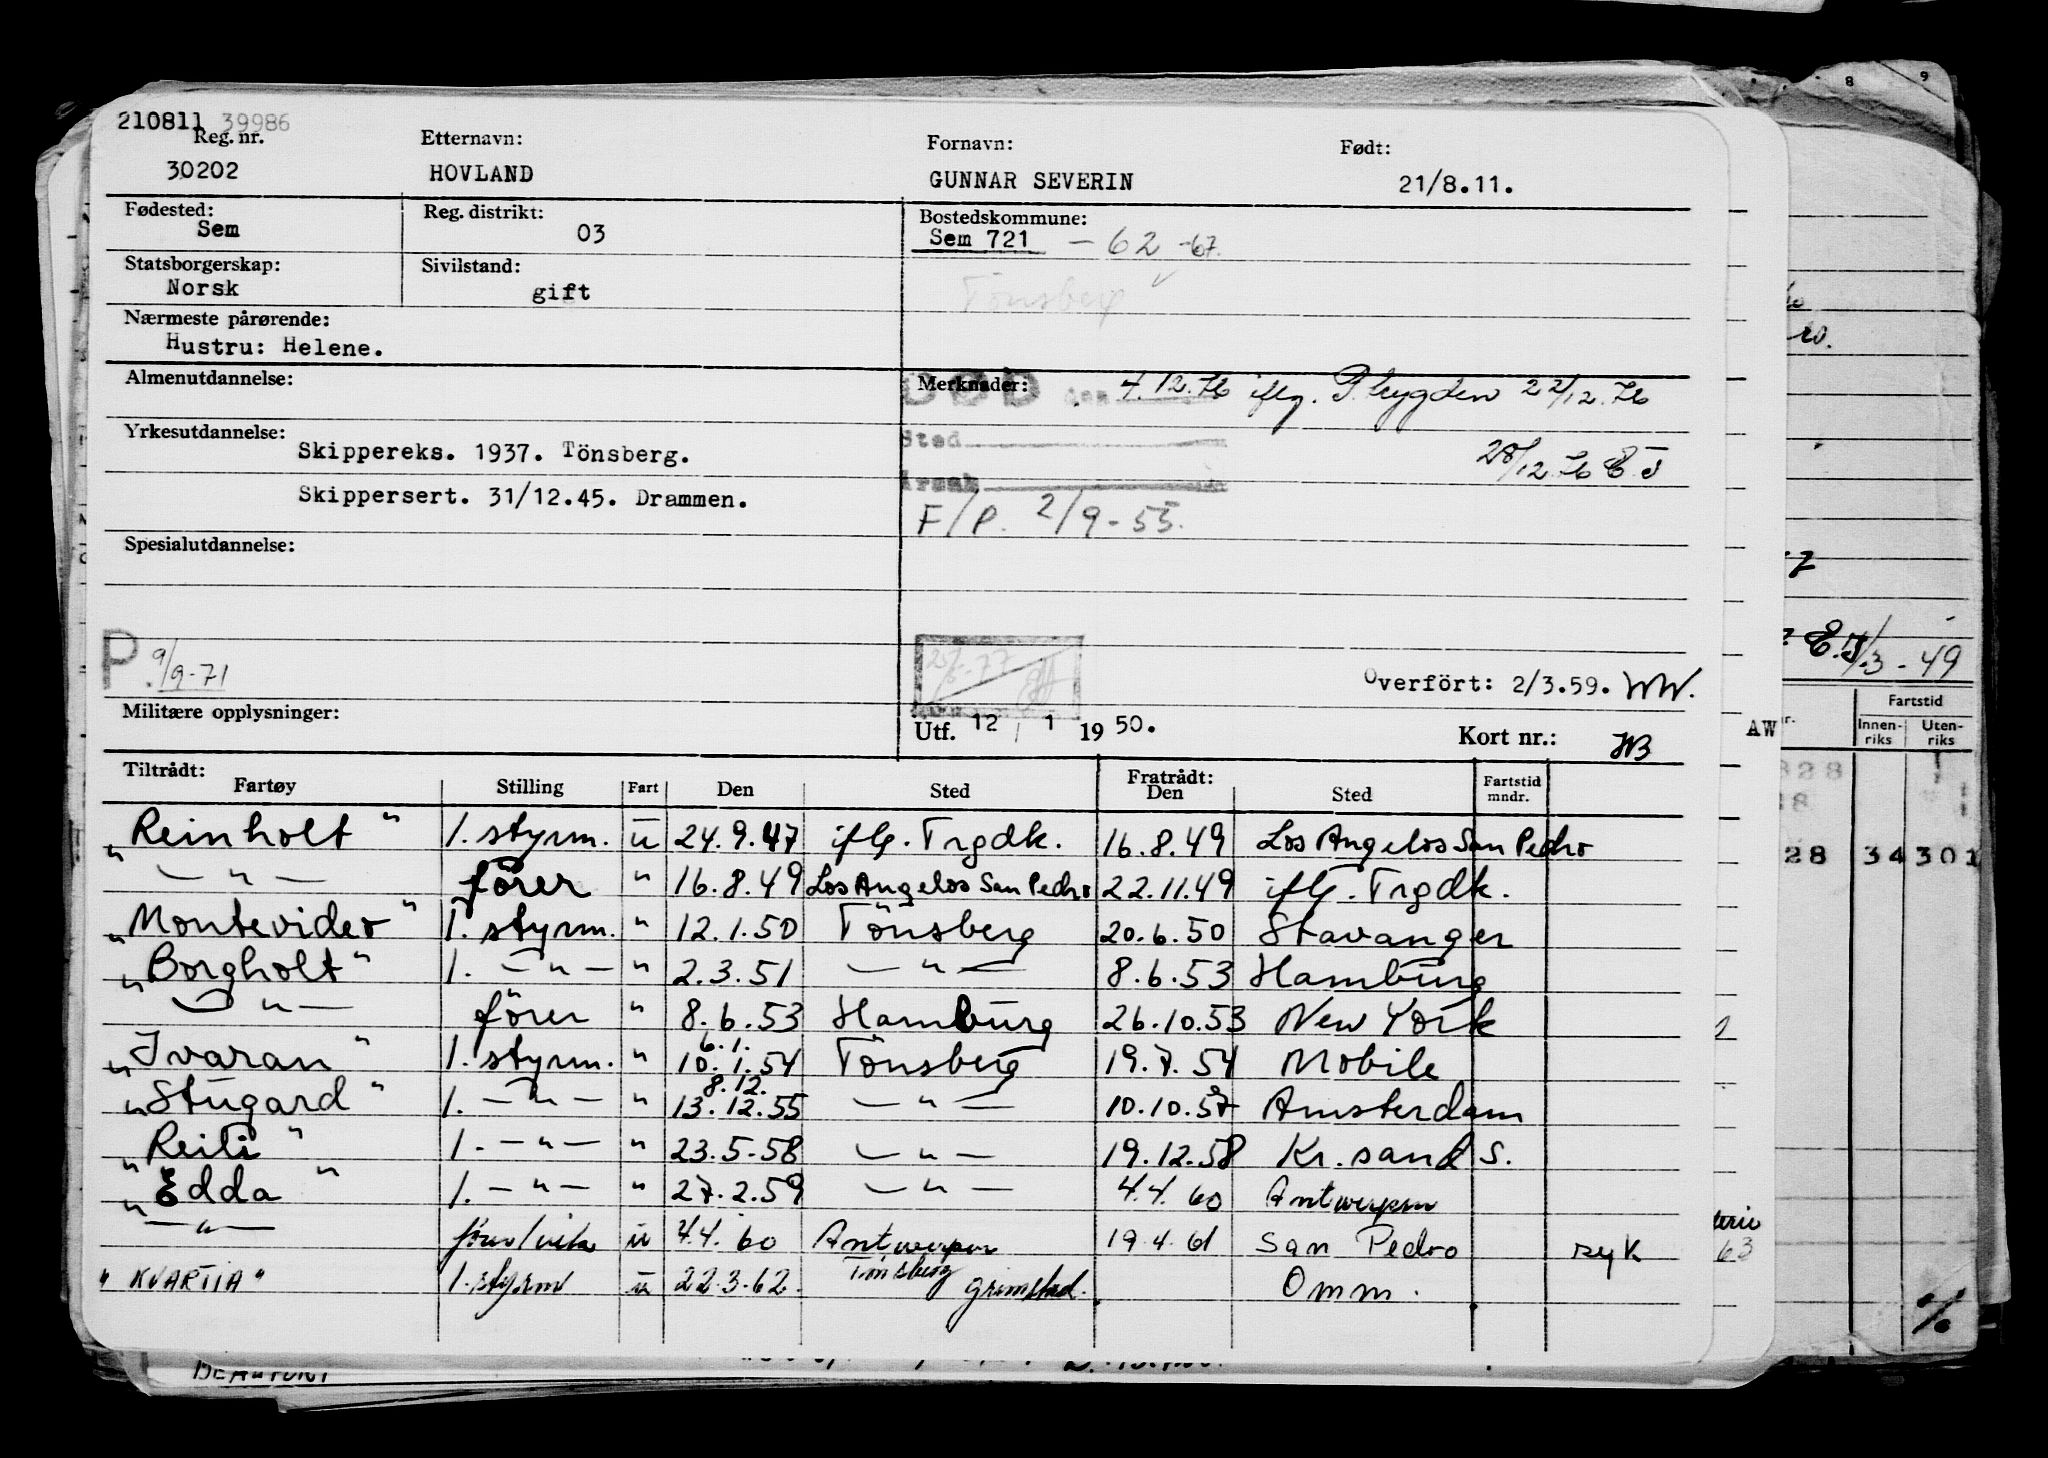 210811 39986
Reg. nr. Etternavn: Fornavn: Født:
30202 HOVLAND GUNNAR SEVERIN 21/8.11.
Fødested: Reg. distrikt: Bostedskommune:
Sem 03 Sem 721 - 62 -67.
Statsborgerskap: Sivilstand:
Norsk gift Tönsberg
Nærmeste pårørende:
Hustru: Helene.
Almenutdannelse: Merknader: DØD den 4.12.76 iflg. P.trygden 22/12.76
Yrkesutdannelse: Sted
Skippereks. 1937. Tönsberg. 28/12.76 E.J
Årsak
Skippersert. 31/12.45. Drammen.
F/P. 2/9-55.
Spesialutdannelse:
P. 9/9-71
Overfört: 2/3.59. WW.
Militære opplysninger: Utf. 12 / 1 1950. Kort nr.: HB
Tiltrådt: Fratrådt:
Fartøy Stilling Fart Den Sted Den Sted Fartstid mndr.
"Reinholt" 1. styrm. u 24.9.47 iflg. Trgdk. 16.8.49 Los Angelos San Pedro
— " — förer " 16.8.49 Los Angelos San Pedro 22.11.49 iflg. Trgdk.
"Montevideo" 1. styrm. " 12.1.50 Tönsberg 20.6.50 Stavanger
"Borgholt" 1. — " — " 2.3.51 — " — 8.6.53 Hamburg
— " — förer " 8.6.53 Hamburg 26.10.53 New York
6.1.
"Ivaran" 1. styrm. " 10.1.54 Tönsberg 19.7.54 Mobile
8.12.
"Stugard" 1. — " — " 13.12.55 — " — 10.10.57 Amsterdam
"Reiti" 1. — " — " 23.5.58 — " — 19.12.58 Kr.sand S.
"Edda" 1. — " — " 27.2.59 — " — 4.4.60 Antwerpen
— " — förer/vik u 4.4.60 Antwerpen 19.4.61 San Pedro syk
"KVARTIA" 1. styrm u 22.3.62. Tönsberg Grimstad. Omm.
E.J 1/3-49
Fartstid
Innen-riks Uten-riks
AW
828
28 34 301
63
%
BEAUFORT